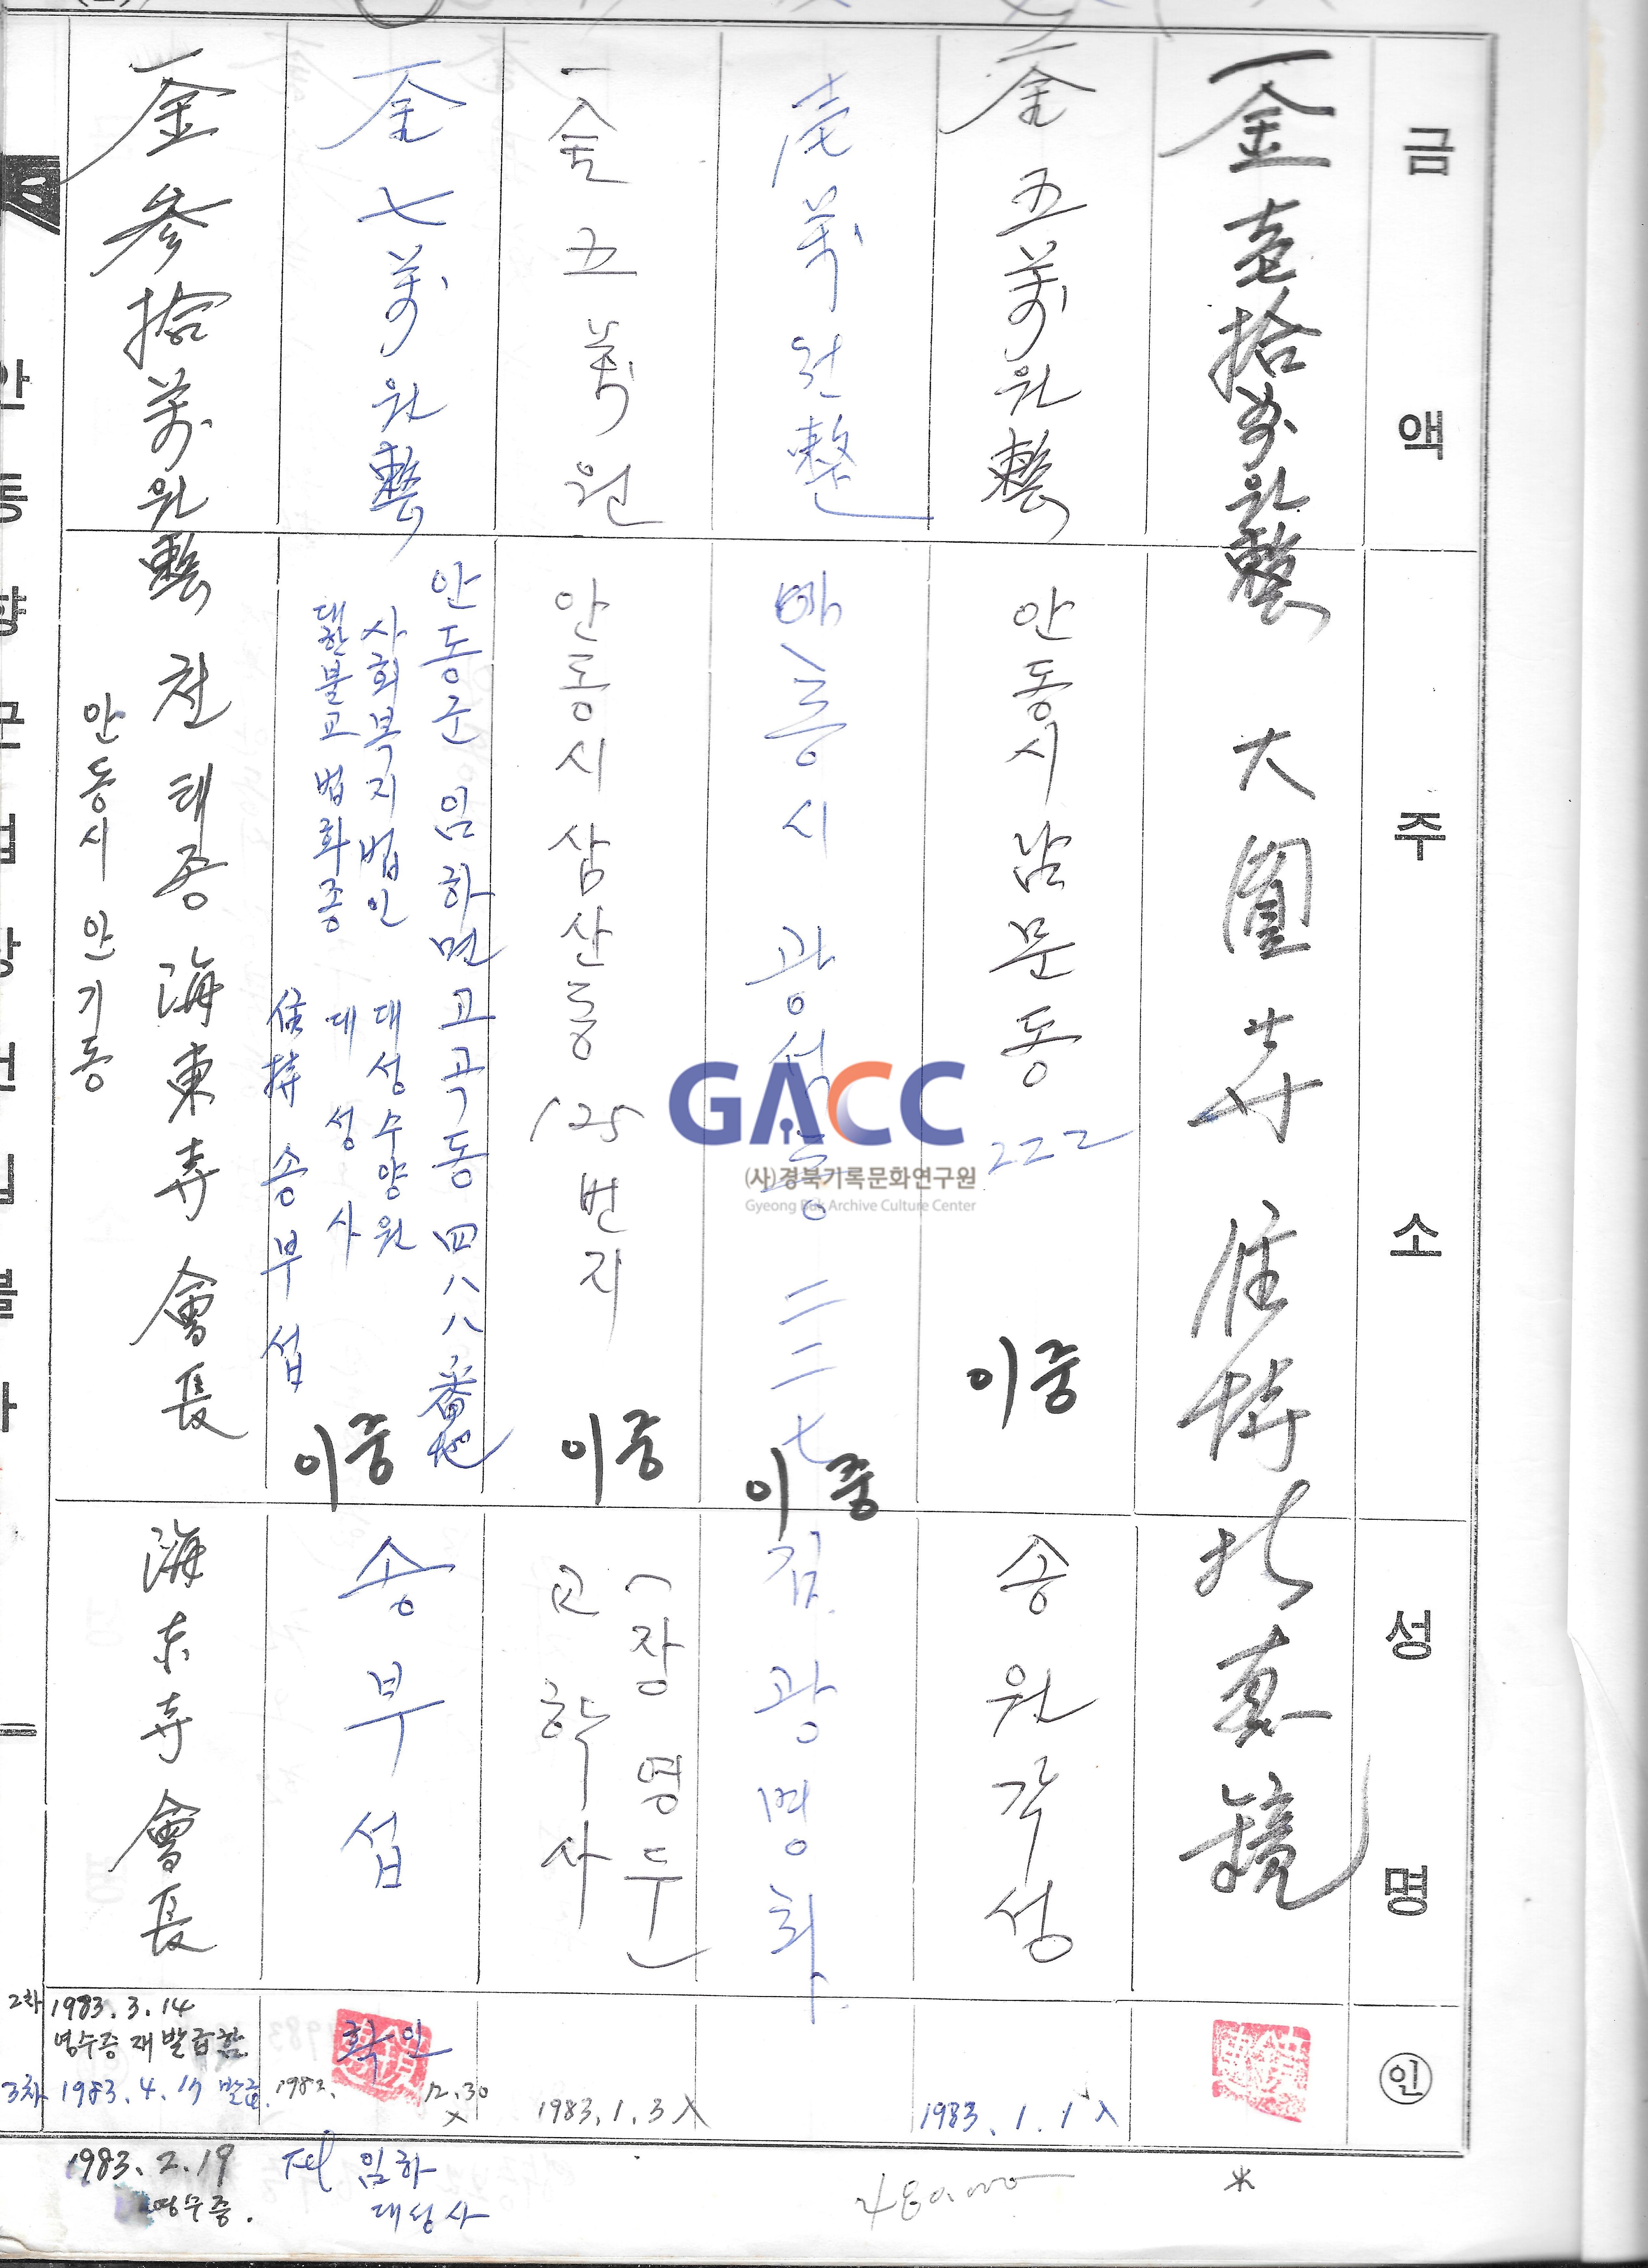 금액
주소
성명
인
一金 壹拾萬원整
大圓寺 住持
眞鏡
一金 五萬원整
안동시 남문동 222
이중
송원각성
1983. 1. 1 入
壱萬원整
시
二三七
이중
김광명화
一金 五萬원
안동시 삼산동 125번지
이중
(장영두)
고학사
1983. 1. 3 入
一金 七萬원整
안동군 임하면 고곡동 四八八番地
사회복지법인 대성수양원
대한불교 법화종 대성사
住持 송부섭
이중
송부섭
확인
1982. 12. 30
임하
대성사
一金 參拾萬원整
천태종 海東寺 會長
안동시 안기동
海東寺 會長
2차 1983. 3. 14
영수증 재발급함.
3차 1983. 4. 17 발급.
1983. 2. 19
영수증.
480,000
*
GACC
(사)경북기록문화연구원
Gyeong Buk Archive Culture Center